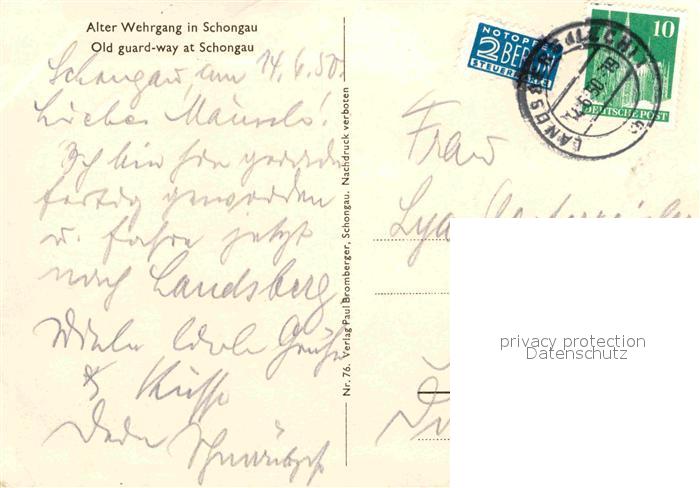 Alter Wehrgang in Schongau
Old guard-way at Schongau
Schongau, am 14.6.50.
Liebes Mäusele!
Ich bin hier gerade
fertig geworden
u. fahre jetzt
nach Landsberg.
Viele liebe Grüße
& Küsse
Dein
Nr. 76. Verlag Paul Bromberger, Schongau. Nachdruck verboten
NOTOPFER
2 BERLIN
STEUERMARKE
10
DEUTSCHE POST
LANDSBERG (LECH)
Frau
Lya
privacy protection
Datenschutz